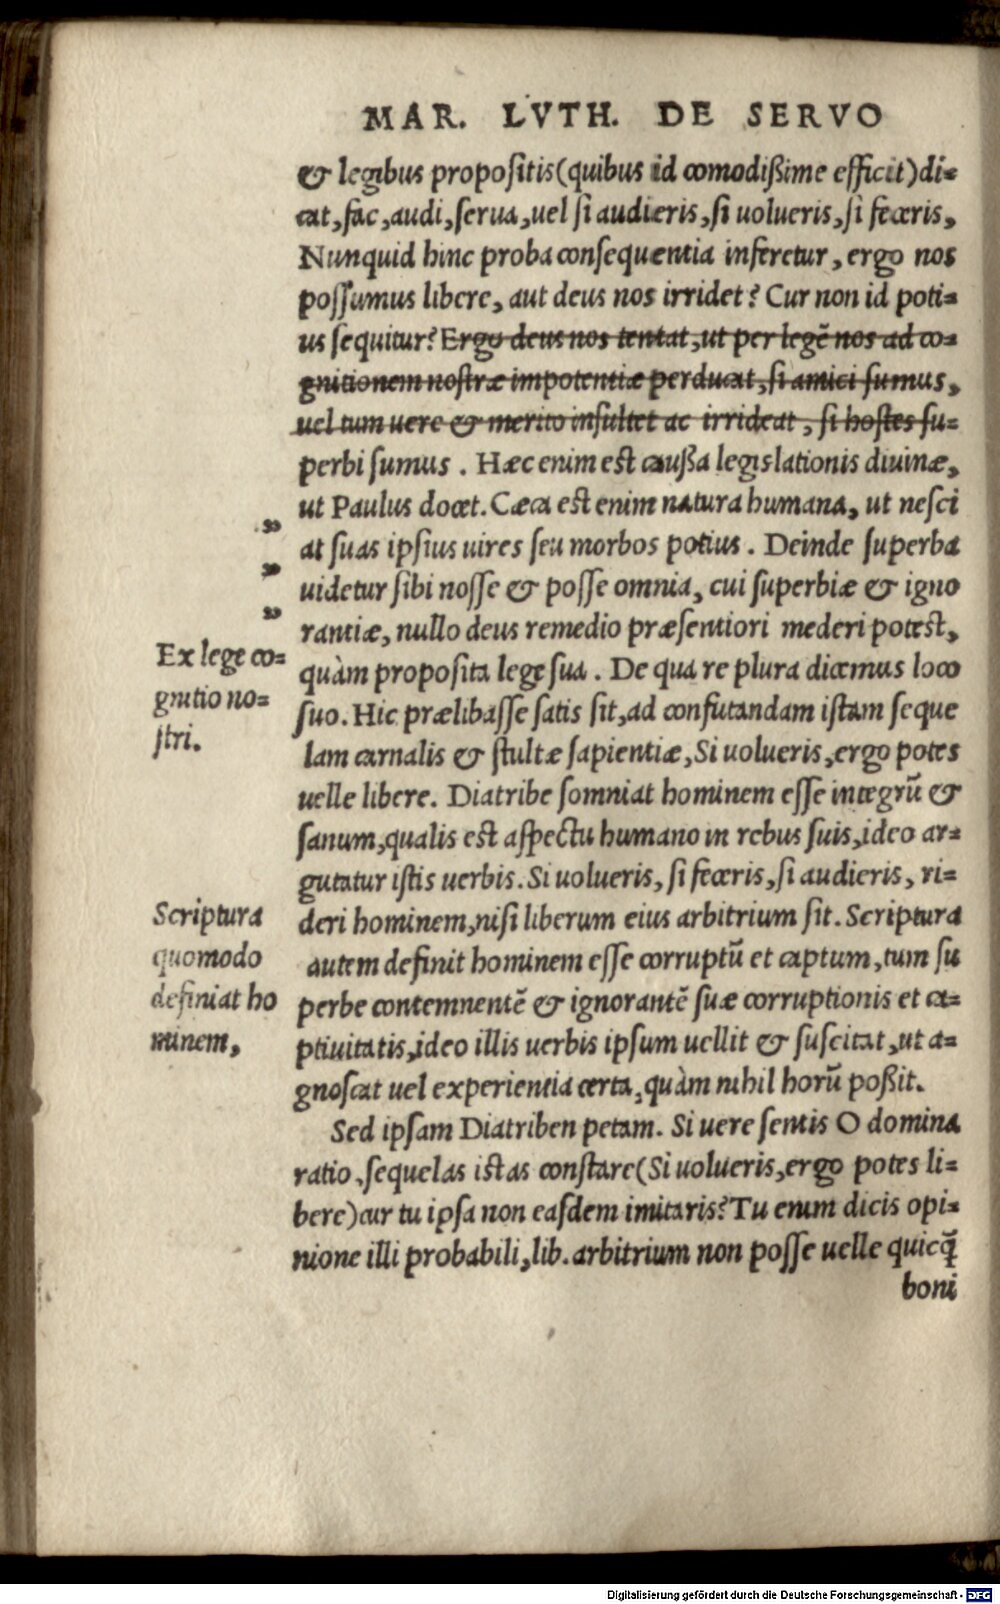 MAR. LVTH. DE SERVO
& legibus propositis(quibus id comodißime efficit)di=
cat,fac,audi,serua,uel si audieris,si uolueris,si feceris,
Nunquid hinc proba consequentia inferetur,ergo nos
possumus libere, aut deus nos irridet? Cur non id poti=
us sequitur? Ergo deus nos tentat,ut per legē nos ad co=
gnitionem nostræ impotentiæ perducat,si amici sumus,
uel tum uere & merito insultet ac irrideat, si hostes su=
perbi sumus. Hæc enim est caußa legislationis diuinæ,
ut Paulus docet. Cæca est enim natura humana, ut nesci
at suas ipsius uires seu morbos potius. Deinde superba
uidetur sibi nosse & posse omnia, cui superbiæ & igno
rantiæ, nullo deus remedio præsentiori mederi potest,
quàm proposita lege sua. De qua re plura dicemus loco
suo. Hic prælibasse satis sit,ad confutandam istam seque
lam carnalis & stultæ sapientiæ,Si uolueris,ergo potes
uelle libere. Diatribe somniat hominem esse integrū &
sanum,qualis est aspectu humano in rebus suis,ideo ar=
gutatur istis uerbis. Si uolueris, si feceris,si audieris, ri=
deri hominem,nisi liberum eius arbitrium sit. Scriptura
autem definit hominem esse corruptū et captum,tum su
perbe contemnentē & ignorantē suæ corruptionis et ca=
ptiuitatis,ideo illis uerbis ipsum uellit & suscitat,ut a=
gnoscat uel experientia certa,quàm nihil horū poßit.
Sed ipsam Diatriben petam. Si uere sentis O domina
ratio,sequelas istas constare(Si uolueris,ergo potes li=
bere)cur tu ipsa non easdem imitaris?Tu enim dicis opi=
nione illi probabili,lib.arbitrium non posse uelle quicq̄
boni
Ex lege co=
gnitio no=
stri.
Scriptura
quomodo
definiat ho
minem,
Digitalisierung gefördert durch die Deutsche Forschungsgemeinschaft - DFG